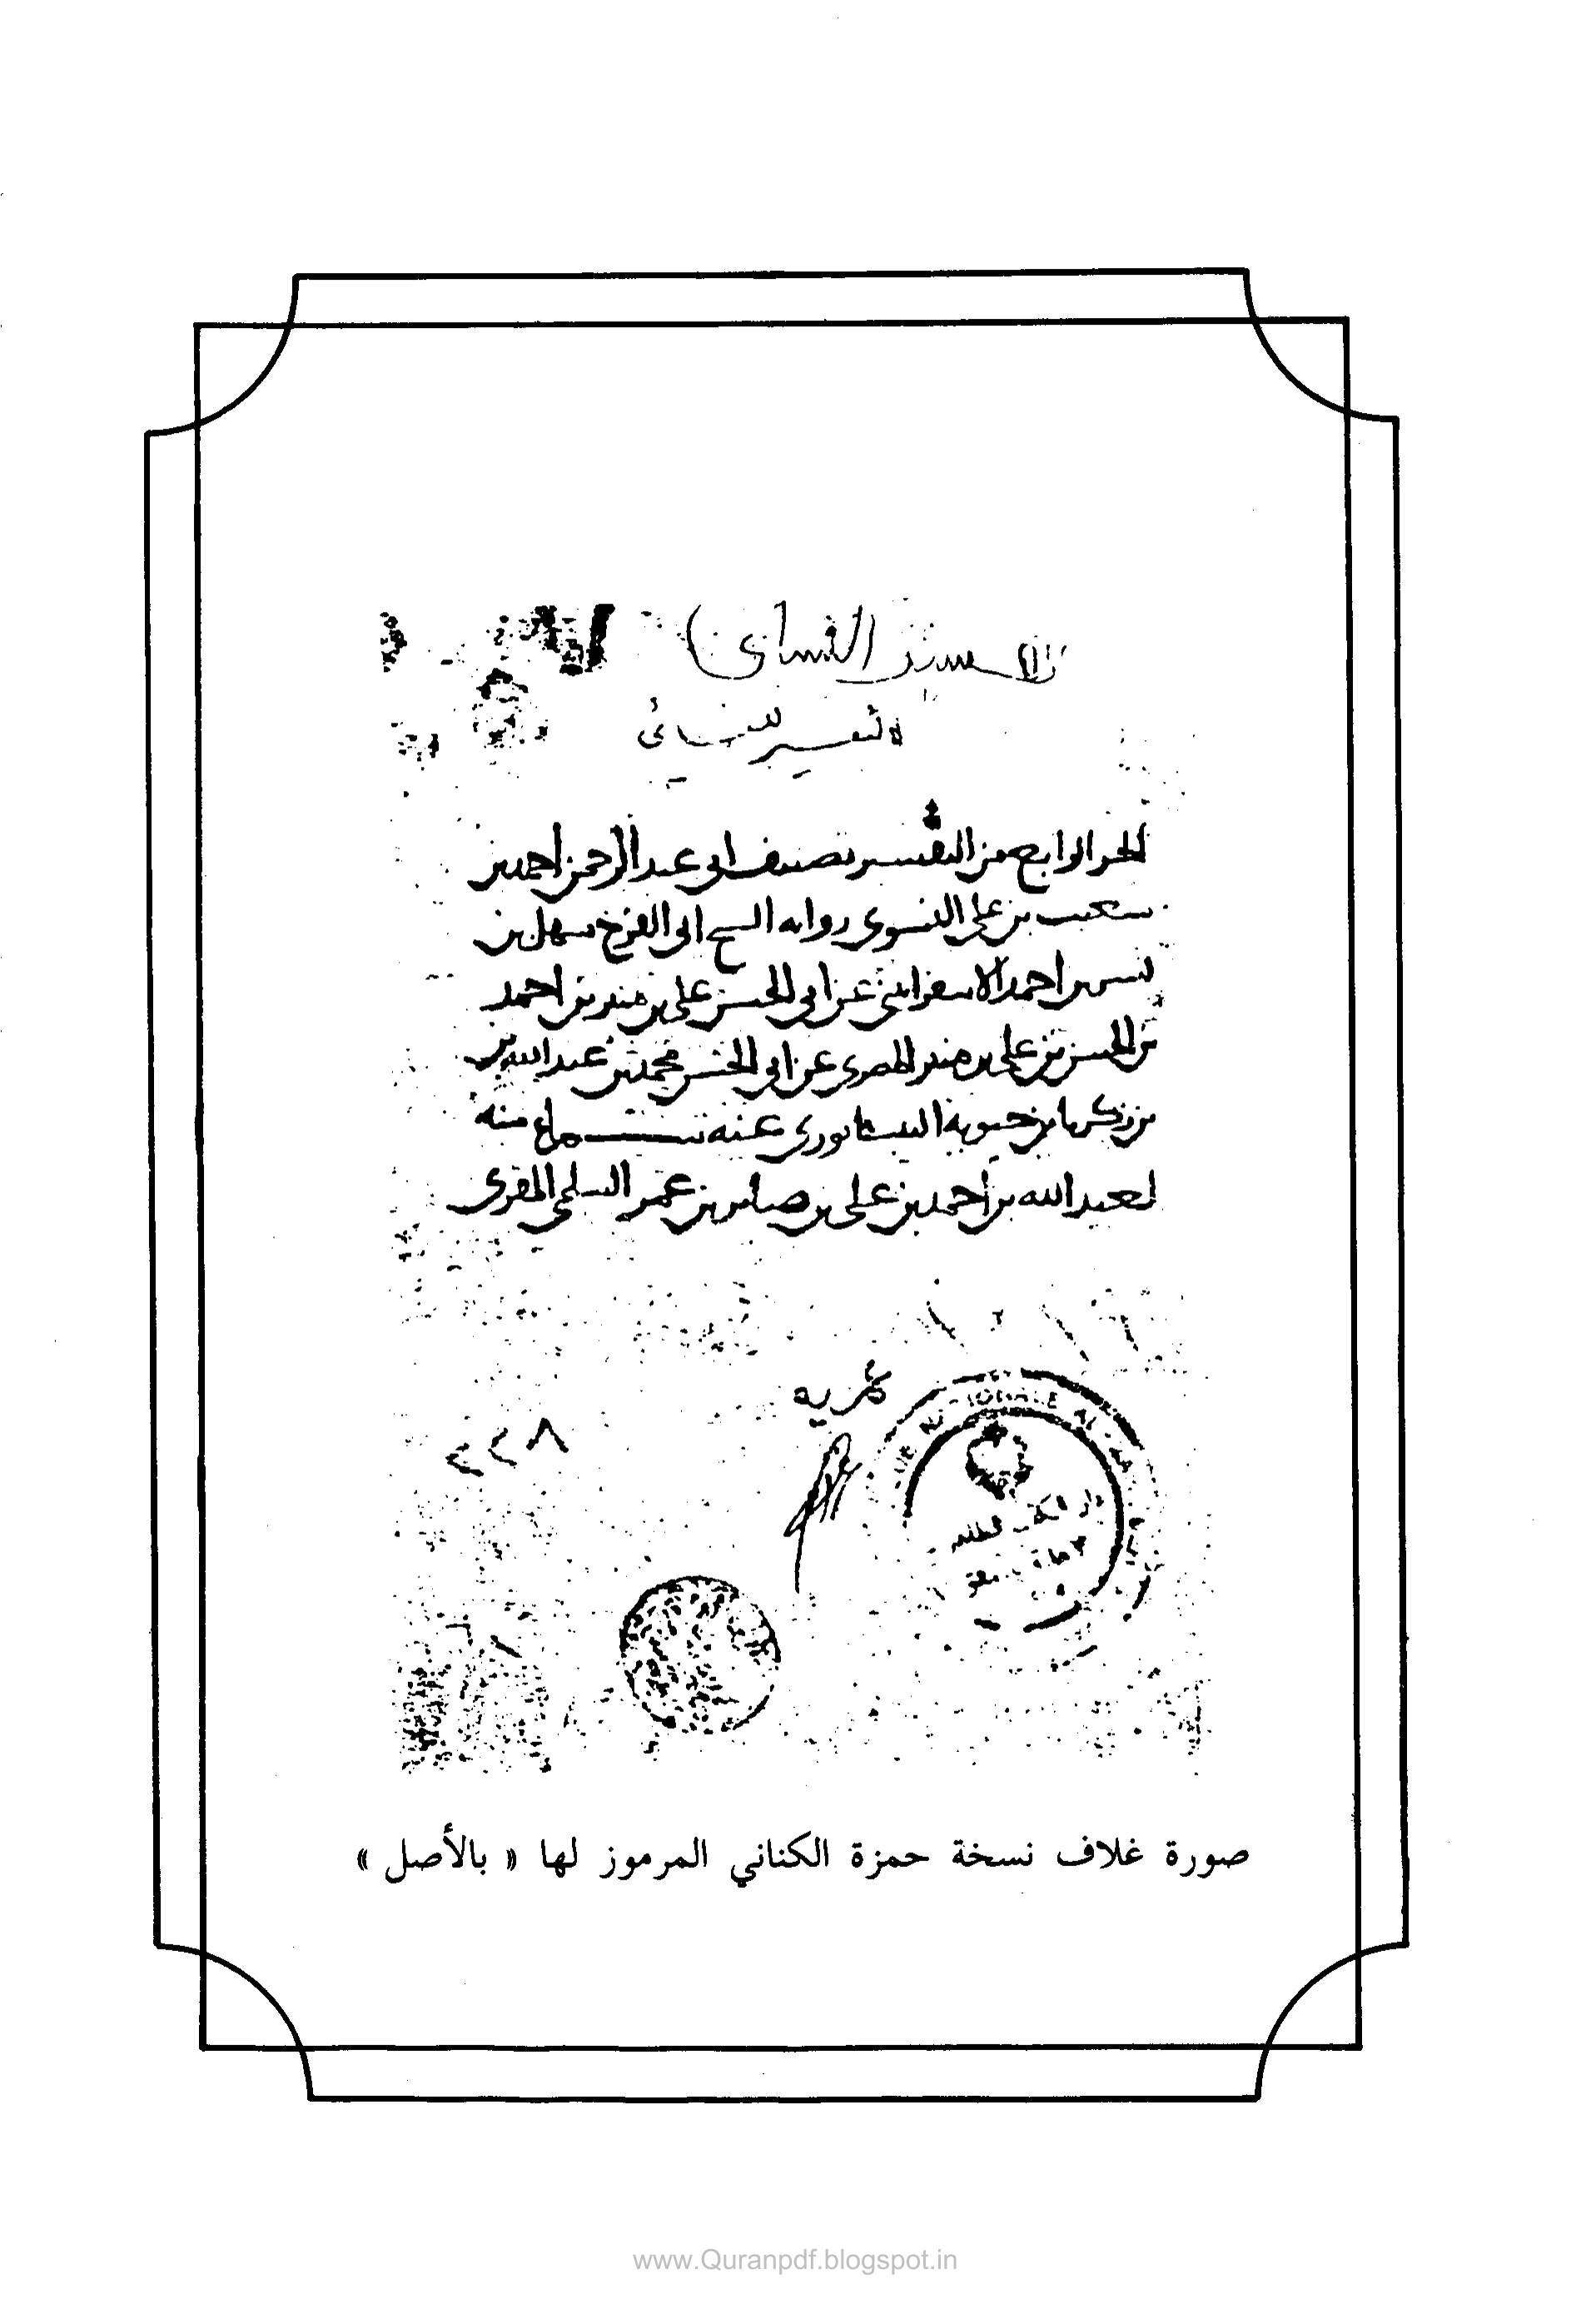 التفسير للنسائي
الجزء الرابع من التفسير تصنيف ابي عبد الرحمن احمد بن
شعيب بن علي النسوي رواية الشيخ ابي الفرج سهل بن
بشر بن احمد الاسفرايني عن ابي الحسن علي بن منير بن احمد
بن الحسن بن علي بن منير المصري عن ابي الحسن محمد بن عبد الله بن
بن زكريا بن حيويه النيسابوري عنه سماع منه
لعبد الله بن احمد بن علي بن صابر بن عمر السلمي المقري
عمريه
صورة غلاف نسخة حمزة الكناني المرموز لها « بالأصل »
www.Quranpdf.blogspot.in